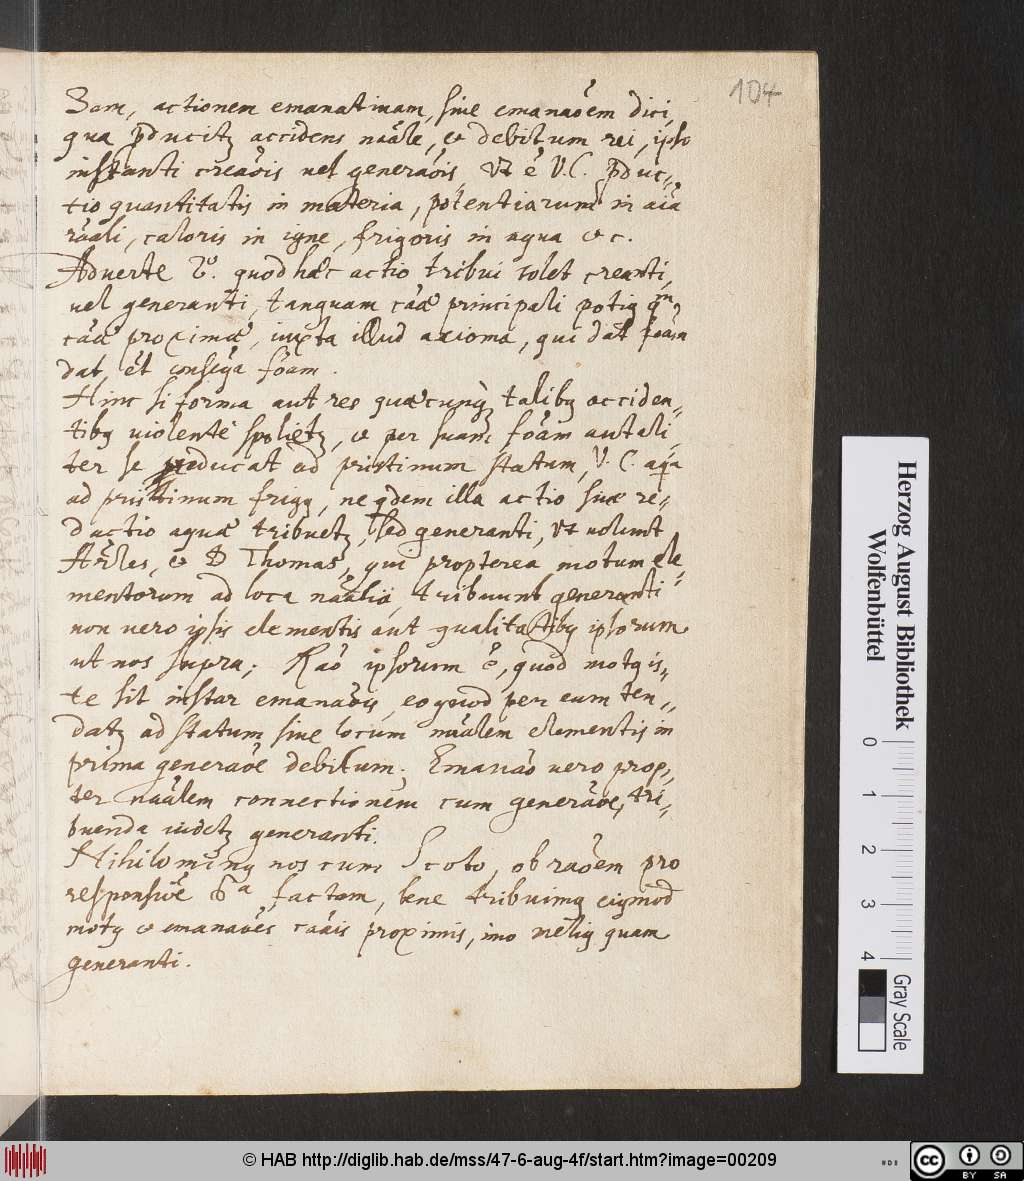 104
Zam, actionem emanativam, sive emanaõem dici,
qua pducitz accidens naãle, et debitum rei, ipso
instanti creaõis vel generaõis. Ut ẽ V.C. pduc„
tio quantitatis in materia, potentiarum in aĩa
rãali, caloris in igne, frigoris in aqua &c.
Adverte 2º. quod hæc actio tribui solet creanti,
vel generanti, tanquam cãæ principali potiꝰ qm
cãæ proximæ, iuxta illud axioma, qui dat foãm
dat et conseqa foãm.
Hinc si forma aut res quæcunqꝫ talibꝰ acciden„
tibꝰ violentè spolietz, et per suam foãm aut ali„
ter se reducat ad pristinum statum, V.C. aqua
ad pristinum frigꝰ, ne qdem illa actio sive re„
ductio aquæ tribuetz, sed generanti, ut volunt
Arlẽs, et D Thomas, qui propterea motum ele„
mentorum ad loca naãlia, tribuunt generanti
non vero ipsis elementis aut qualitatibꝰ ipsorum
ut nos supra; Raõ ipsorum ẽ, quod motꝰ is„
te sit instar emanaõis, eo quod per eum ten„
datz ad statum sive locum naãlem elementis in
prima generaõe debitum; Emanaõ vero prop„
ter naãlem connectionem cum generaõe, tri„
buenda videtz generanti.
Nihilominꝰ nos cum Scoto, ob raõem pro
responsiõe factam, bene tribuimꝰ eiꝰmod
motꝰ et emanaões cãis proximis, imo meliꝰ quam
generanti.
Herzog August Bibliothek
Wolfenbüttel
0 1 2 3 4
Gray Scale
© HAB http://diglib.hab.de/mss/47-6-aug-4f/start.htm?image=00209
cc BY SA